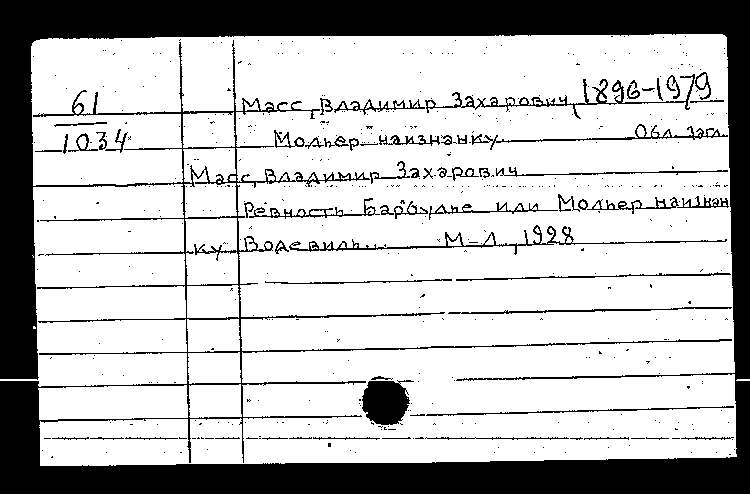 61
1034
Масс, Владимир Захарович, 1896-1979
Мольер наизнанку. Обл. загл.
Масс, Владимир Захарович
Ревность Барбулье или Мольер наизнан
ку Водевиль... М-Л, 1928